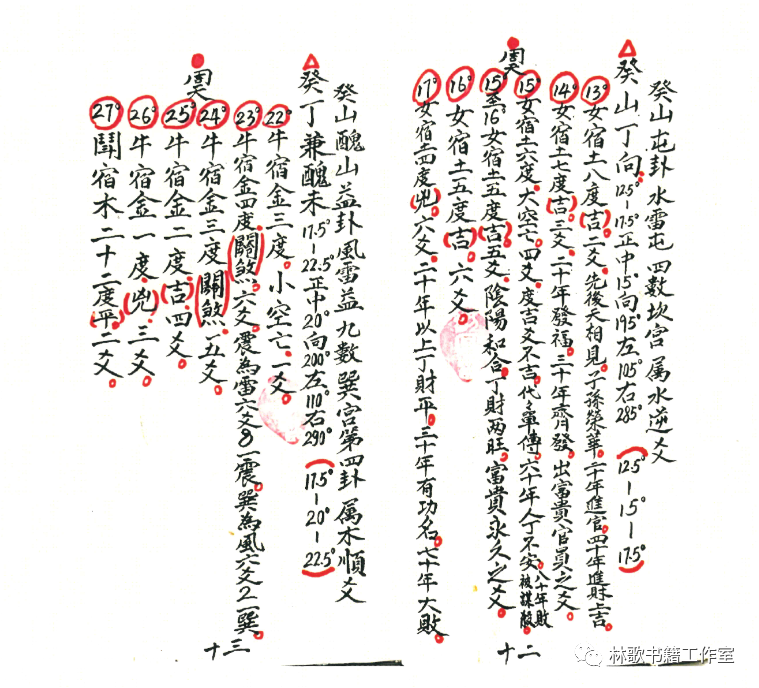 癸山屯卦水雷屯四數坎宮属水逆爻
癸山丁向12.5°-17.5°正中15°向195°左105°右285°(12.5°-15°-17.5°)
13°女宿土八度(吉)二爻。先後天相見。子孫榮華。二十年進官。四十年進財上吉。
14°女宿土七度(吉)三爻。二十年發福。三十年齊發。出富貴官員之爻。
15°女宿土六度。大空亡。四爻。度吉爻不吉。代々單傳。六十年人丁不安。八十年敗被謀殺。
15°至16°女宿土五度(吉)五爻。陰陽和合。丁財两旺。富貴永久之爻。
16°女宿土五度(吉)。六爻。
17°女宿土四度(兇)。六爻。二十年以上丁財平。三十年有功名。七十年大敗。
十二
癸山醜山益卦風雷益九數巽宮第四卦属木順爻
癸丁兼醜未17.5°-22.5°正中20°向200°左110°右290°(17.5°-20°-22.5°)
22°牛宿金三度。小空亡。一爻。
23°牛宿金四度(關煞)。六爻。震為雷六爻8一震。巽為風六爻2一巽。
24°牛宿金三度(關煞)。五爻。
25°牛宿金二度(吉)四爻。
26°牛宿金一度。(兇)三爻。
27°鬪宿木二十二度(平)二爻。
十三
林歌书籍工作室